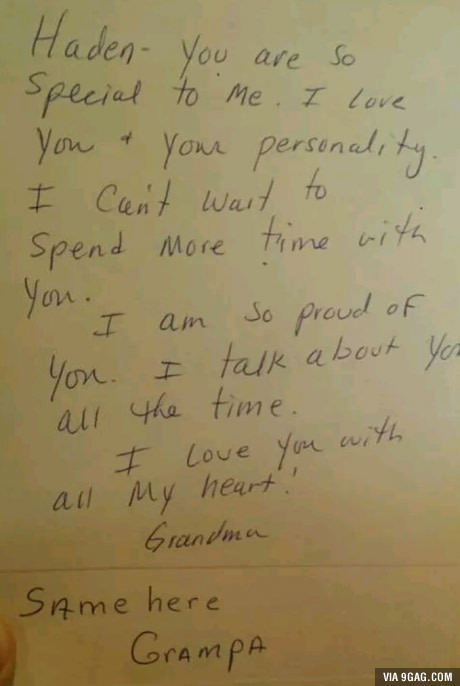 Haden- You are so
Special to Me. I love
You + Your personality.
I Can't Wait to
Spend More time with
You.
I am so proud of
You. I talk about You
all the time.
I Love You with
all My heart!
Grandma
SAme here
GrAmpA
VIA 9GAG.COM